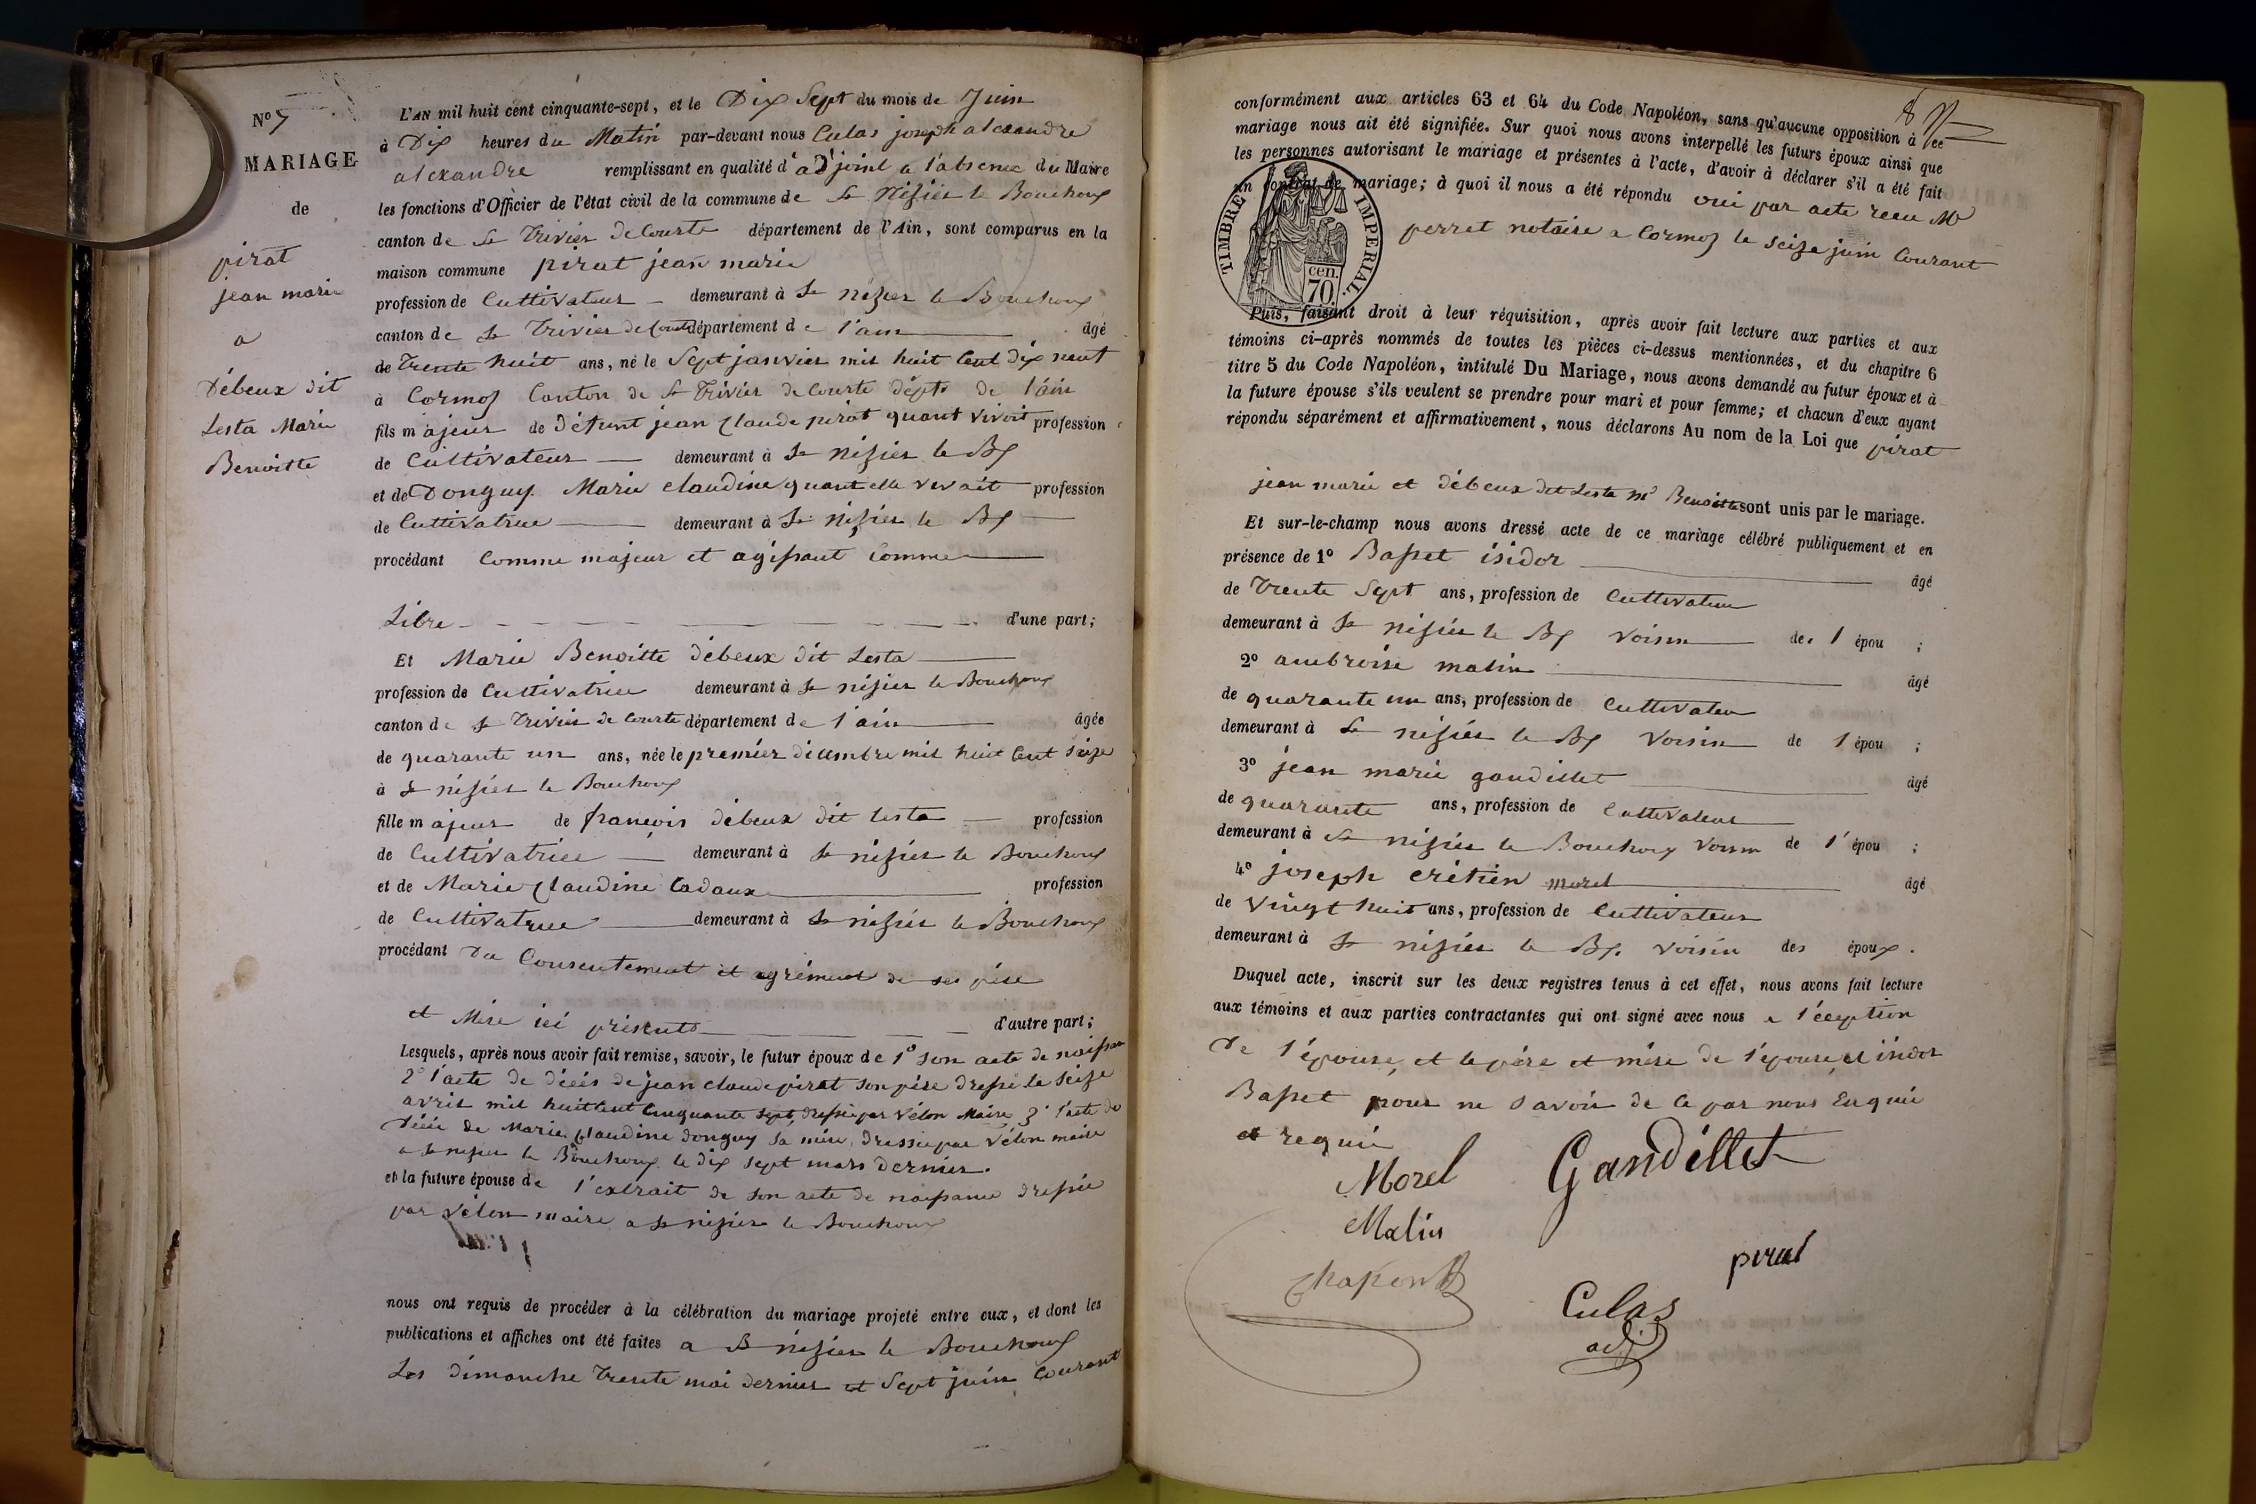 N° 7
MARIAGE
de
pirat
jean marie
a
Débeux dit
Lesta Marie
Benoitte
L'AN mil huit cent cinquante-sept, et le Dix Sept du mois de Juin
à Dix heures du Matin par-devant nous Culas joseph alexandre
alexandre remplissant en qualité d'adjoint a l'absence du Maire
les fonctions d'Officier de l'état civil de la commune de St Nizier le Bouchoux
canton de St Trivier de Courte département de l'Ain, sont comparus en la
maison commune pirat jean marie
profession de Cultivateur demeurant à St nizier le Bouchoux
canton de St Trivier de Courte département de l'ain âgé
de Trente huit ans, né le Sept janvier mil huit Cent dix neuf
à Cormoz Canton de St Trivier de Courte dépt de l'ain
fils majeur de défunt jean Claude pirat quant vivoit profession
de Cultivateur demeurant à St nizier le Bx
et de Donguy Marie claudine quant elle vivait profession
de Cultivatrice demeurant à St nizier le Bx
procédant Comme majeur et agissant comme
Libre d'une part;
Et Marie Benoitte débeux dit Lesta
profession de Cultivatrice demeurant à St nizier le Bouchoux
canton de St Trivier de Courte département de l'ain âgée
de quarante un ans, née le premier décembre mil huit Cent Seize
à St nizier le Bouchoux
fille majeur de françois débeux dit Lesta profession
de Cultivatrice demeurant à St nizier le Bouchoux
et de Marie Claudine Cadaux profession
de Cultivatrice demeurant à St nizier le Bouchoux
procédant Du Consentement et agrément de ses père
et Mère ici présents d'autre part;
Lesquels, après nous avoir fait remise, savoir, le futur époux de 1° Son acte de naissan
2° l'acte de décès de jean claude pirat son père dressé le Seize
avril mil huit Cent Cinquante Sept, dressé par Vélon Maire 3° l'acte de
décée de Marie Claudine donguy Sa mère, dressée par Vélon maire
a St nizier le Bouchoux le dix sept mars dernier.
et la future épouse de l'extrait de son acte de naissance dressée
par Vélon maire a St nizier le Bouchoux
nous ont requis de procéder à la célébration du mariage projeté entre eux, et dont les
publications et affiches ont été faites a St nizier le Bouchoux
Les dimanche Trente mai dernier et Sept juin Courant
conformément aux articles 63 et 64 du Code Napoléon, sans qu'aucune opposition à ce
mariage nous ait été signifiée. Sur quoi nous avons interpellé les futurs époux ainsi que
les personnes autorisant le mariage et présentes à l'acte, d'avoir à déclarer s'il a été fait
un contrat de mariage; à quoi il nous a été répondu oui par acte recu Me
perret notaire a Cormoz le Seize juin Courant
TIMBRE IMPERIAL.
cen.
70.
Puis, faisant droit à leur réquisition, après avoir fait lecture aux parties et aux
témoins ci-après nommés de toutes les pièces ci-dessus mentionnées, et du chapitre 6
titre 5 du Code Napoléon, intitulé Du Mariage, nous avons demandé au futur époux et à
la future épouse s'ils veulent se prendre pour mari et pour femme; et chacun d'eux ayant
répondu séparément et affirmativement, nous déclarons Au nom de la Loi que pirat
jean marie et débeux dit Lesta Me Benoitte sont unis par le mariage.
Et sur-le-champ nous avons dressé acte de ce mariage célébré publiquement et en
présence de 1° Basset isidor âgé
de Trente Sept ans, profession de Cultivateur
demeurant à St nizier le Bx voisin de l époux ;
2° ambroise malin âgé
de quarante un ans, profession de Cultivateur
demeurant à St nizier le Bx Voisin de l épou ;
3° jean marie gandillet âgé
de quarante ans, profession de Cultivateur
demeurant à St nizier le Bouchoux Voisin de l' épou ;
4° joseph crétien morel âgé
de Vingt huit ans, profession de Cultivateur
demeurant à St nizier le Bx. voisin des époux.
Duquel acte, inscrit sur les deux registres tenus à cet effet, nous avons fait lecture
aux témoins et aux parties contractantes qui ont signé avec nous a l'éception
De l'épouse, et le père et mère de l'épouse,
Basset pour ne Savoir de Ce par nous Enquis
et requis
Morel
Gandillet
Malin
pirat
Culas
adj